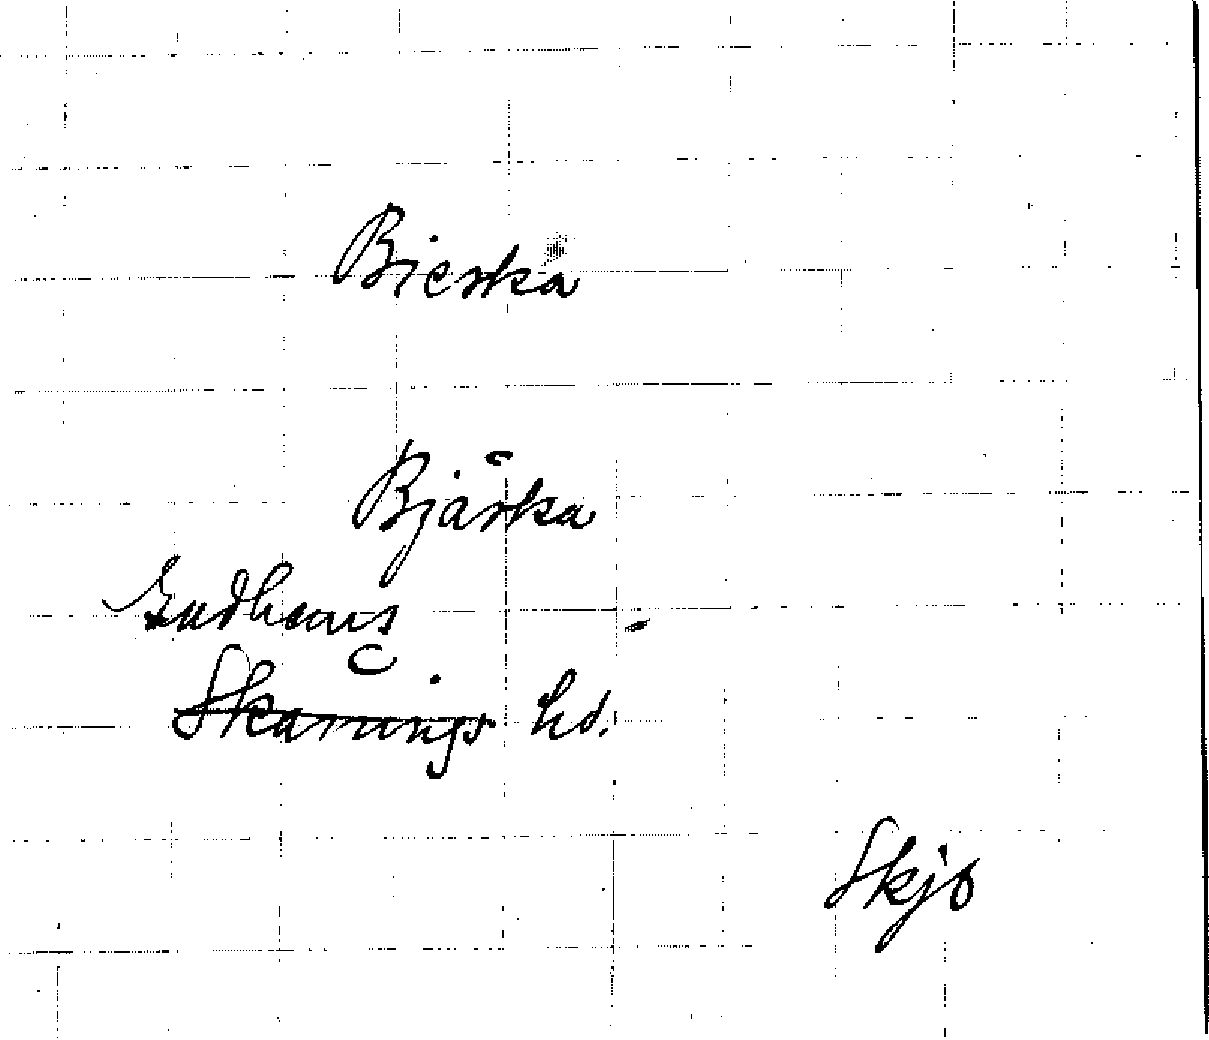 Bierka
Bjärka
Gudhems
Skånings hd.
Skjö